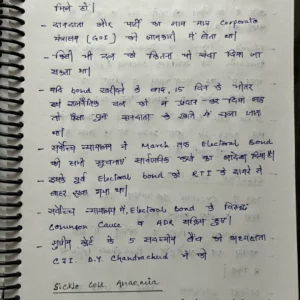 मिले हो।
- दानदाता और पार्टी का नाम मात्र Corporate
मंत्रालय (GOI) को जानकारी में होता था।
- किसी भी दल को कितना भी चंदा दिया जा
सकता था।
- यदि bond खरीदने के बाद, 15 दिन के भीतर
उसे राजनैतिक दल को न प्रदान कर दिया जाए
तो पैसा पुनः दानदाता के खाते में चला जाता
था।
- सर्वोच्च न्यायालय ने March तक Electoral Bond
की सभी सूचनाएं सार्वजनिक करने का आदेश दिया है।
- इसके पूर्व Electoral Bond को RTI के दायरे से
बाहर रखा गया था।
- सर्वोच्च न्यायालय में, Electoral Bond के विरूद्ध
Common Cause व ADR सक्रिय हुए।
- सुप्रीम कोर्ट के 5 सदस्यीय बैंच की अध्यक्षता
CJI. D.Y Chandrachud ने की
Sickle Cell Anaemia